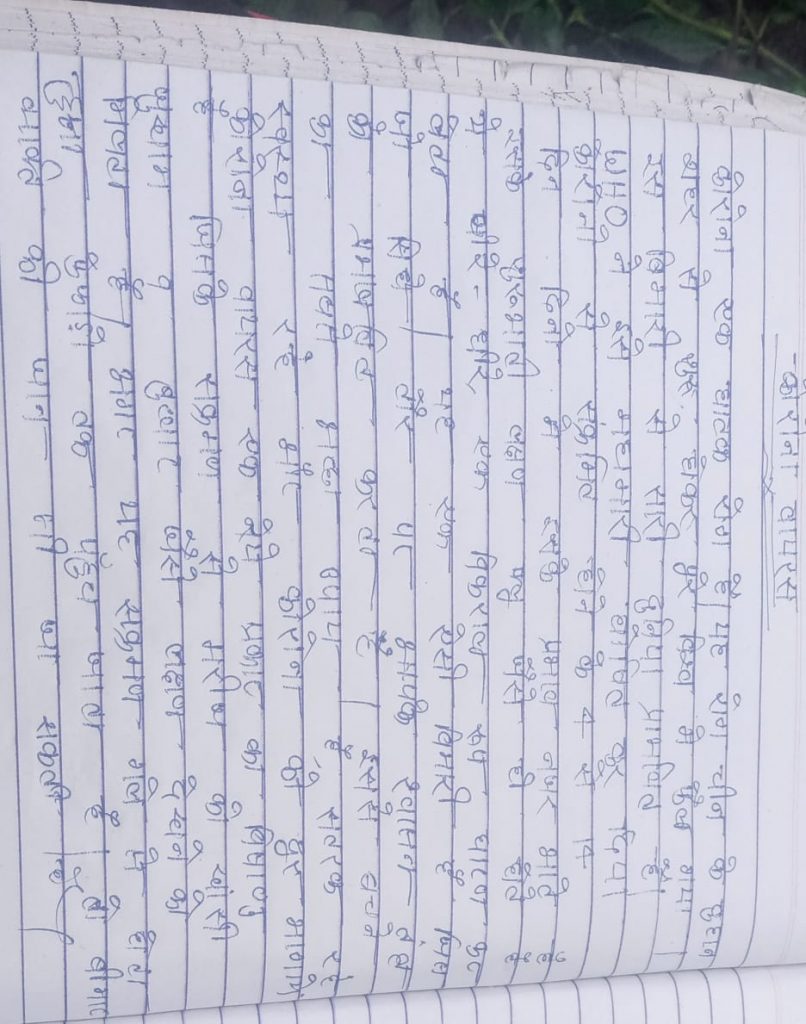 कोरोना वायरस
कोरोना एक घातक रोग है। यह रोग चीन के वुहान
शहर से शुरू होकर पुरे विश्व मे फैल गया।
इस बिमारी से सारी दुनिया प्रभावित है।
WHO ने इसे महामारी घोषित कर दिया
कोरोना से संक्रमित होने के 4 से 14
दिन दिनो में इसके प्रभाव नजर आते है
इसके शुरूआती लक्षण फ्लु जैसे ही होते है
जो धीरे-धीरे एक विकराल रूप धारण कर
लेता है। यह एक ऐसी बिमारी है जिस
जो सिधे तौर पर आपके श्वासन तंत्र
को प्रभावित करता है। इससे बचने
का मात्र उपाय है सतरक रहे
स्वस्थ रहे और कोरोना को दुर भागाये
कोरोना वायरस एक प्रकार का विषाणु
है जिसके संक्रमण से मरीज को खांसी
जुकाम व बुखार जैसे लक्षण देखने को
मिलता है। अगर यह संक्रमण गले से होता
हुआ फेफड़ो तक पहुंच जाता है। तो बीमार
व्यक्ति की जान भी जा सकती है।